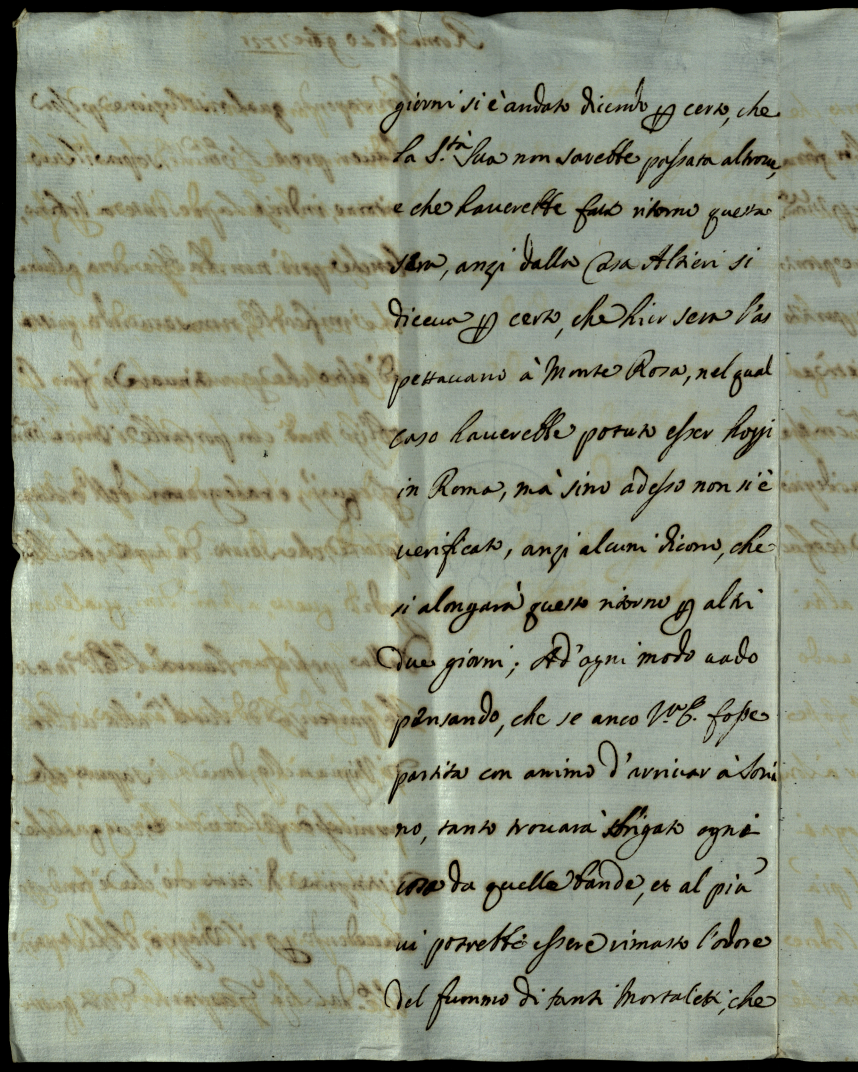 giorni si è andato dicendo p certo, che
la S.tà Sua non sarebbe passata altrove,
e che haverebbe fatto ritorno questa
sera, anzi dalla Casa Altieri si
diceva p certo, che hier sera l'as
pettavano à Monte Rosa, nel qual
caso haverebbe potuto esser hoggi
in Roma, mà sino adesso non si è
verificato, anzi alcuni dicono, che
si alongarà questo ritorno p altri
due giorni; Ad' ogni modo vado
pensando, che se anco V.E. fosse
partita con animo d'arrivar à Soria
no, tanto trovarà sbrigato ogni
cosa da quelle bande, et al più
vi potrebbe essere rimasto l'odore
del fummo di tanti Mortaletti, che